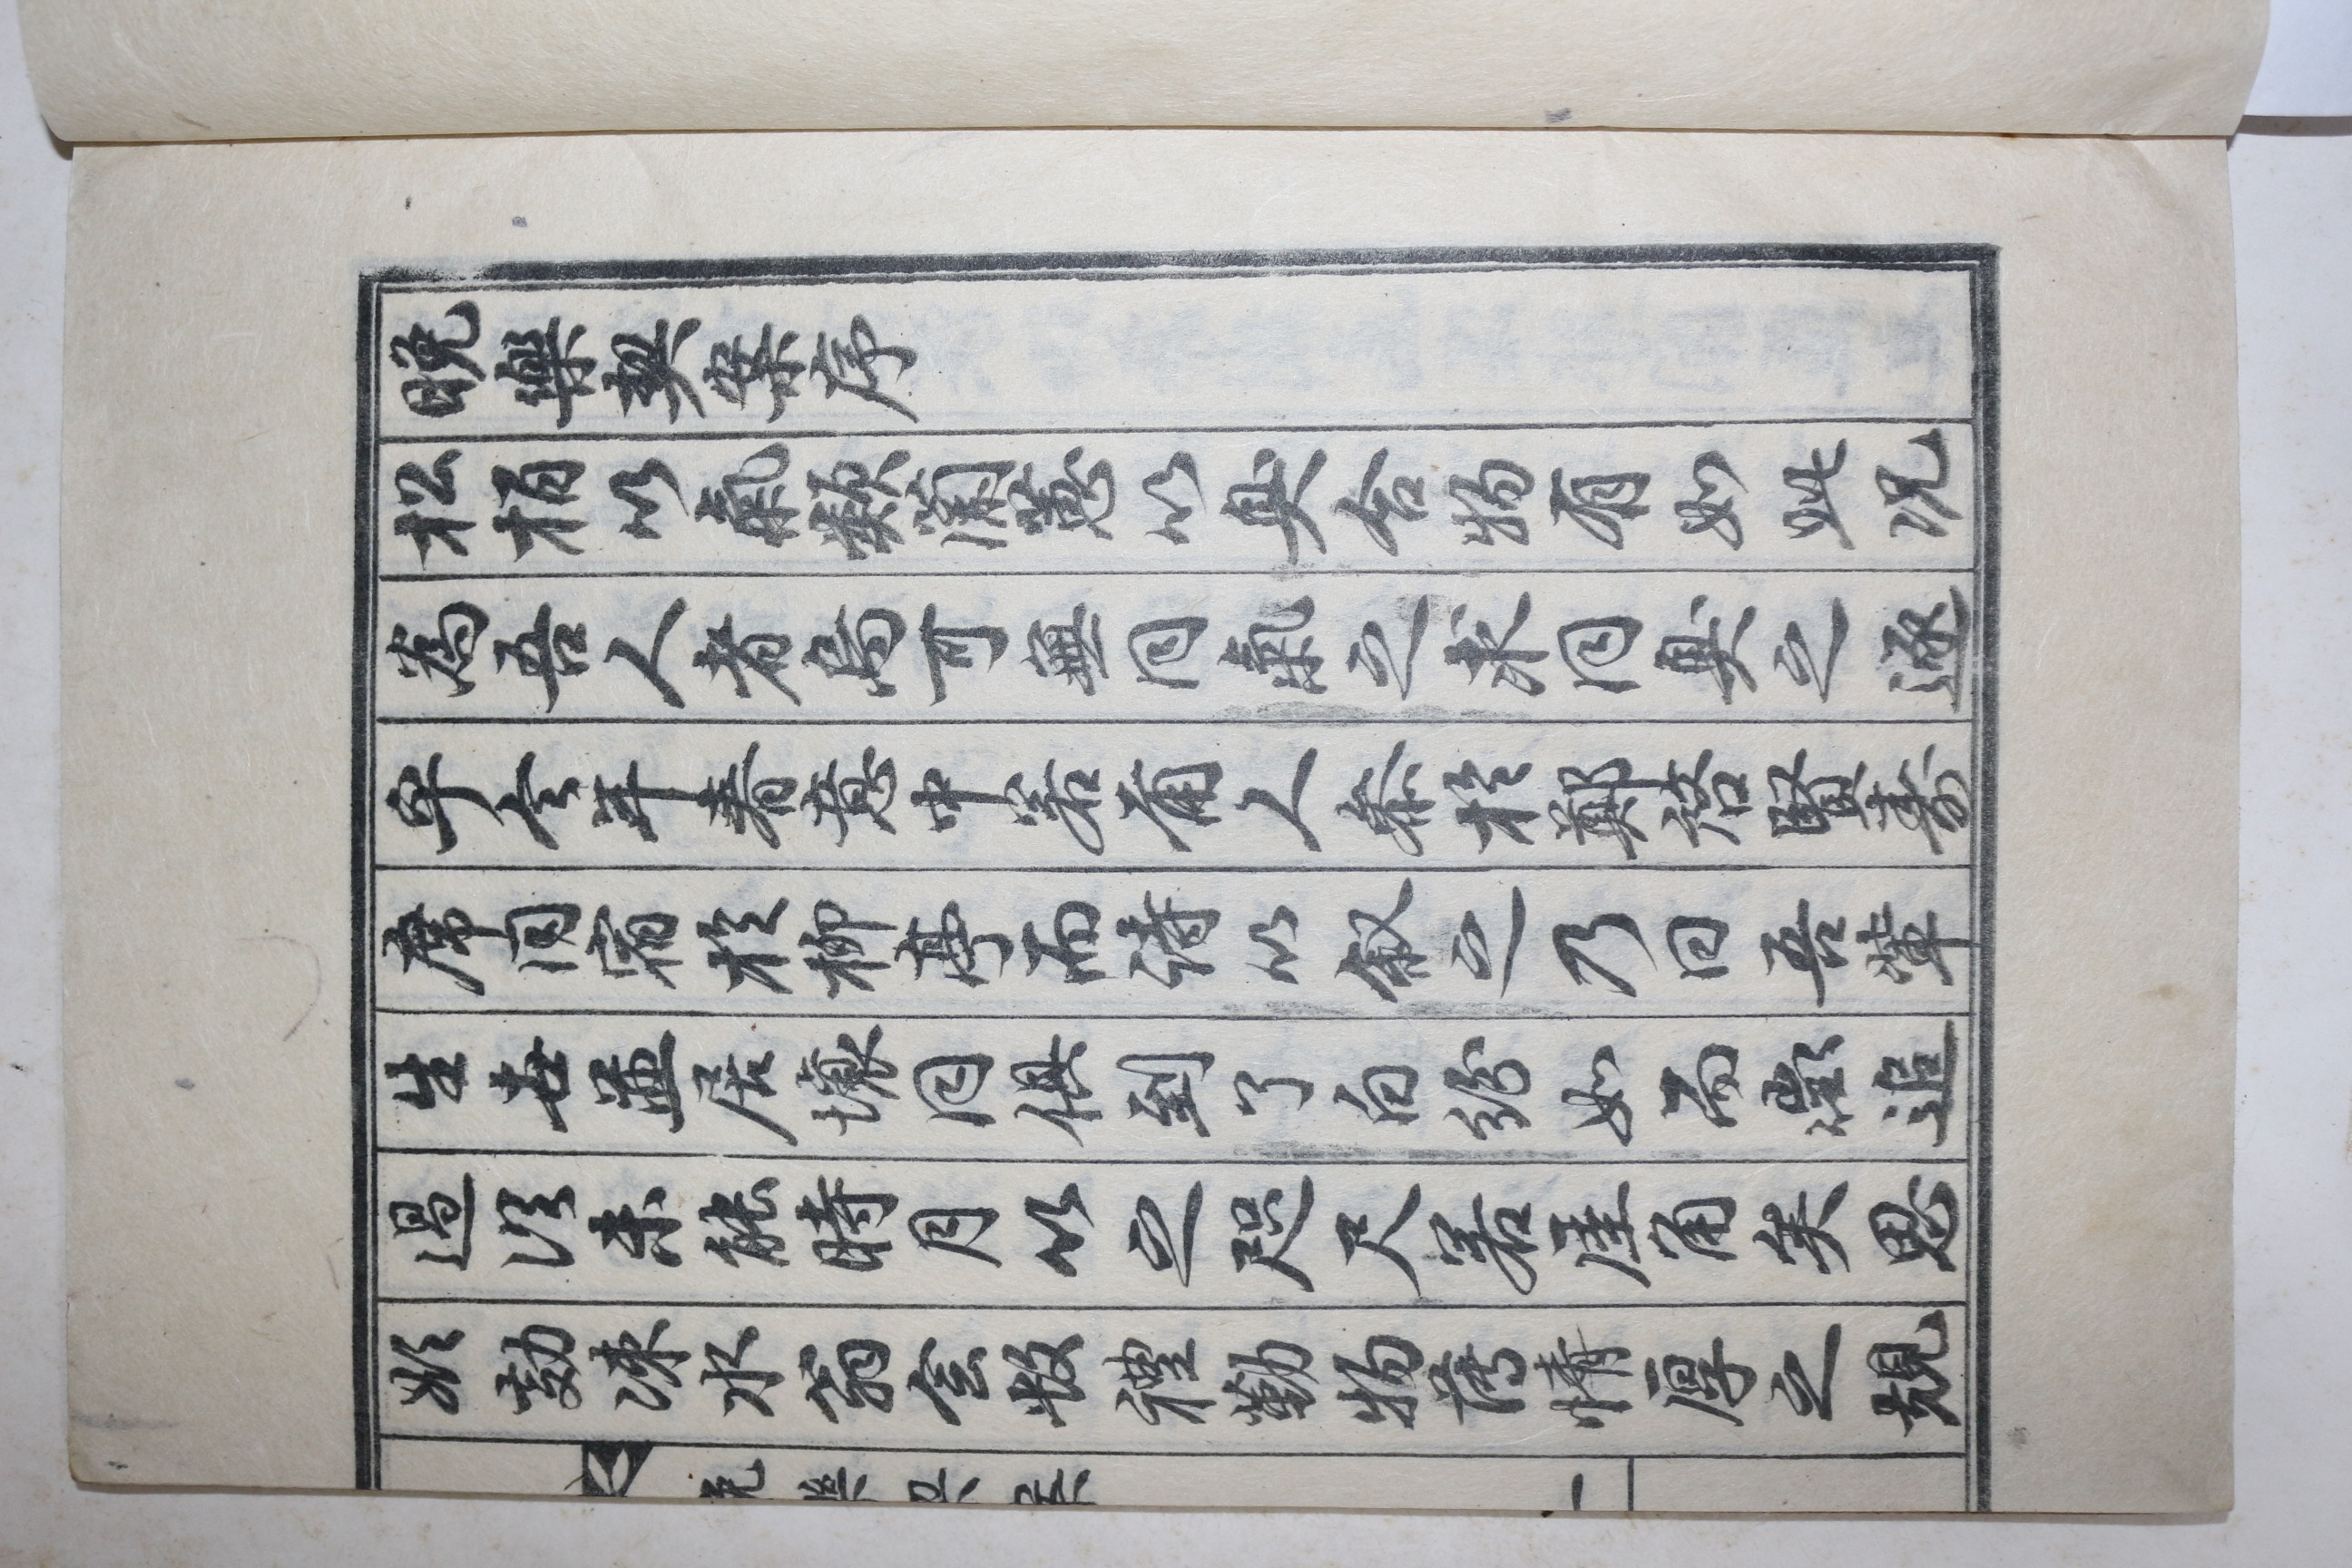 晩樂契案序
松栢以氣類蘭蕙以臭合物有如此况
爲吾人者烏可無同氣之求同臭之逐
乎今年春意中若而人參於鄭啓賢壽
席同宿於柳亭而詩以叙之乃曰吾輩
生世並居壤同俱到了白紛如而徵追
過從未能時月以之咫尺若厓角矣思
欲効涑水翁会數禮勤物薄情厚之規
晩樂契案
一